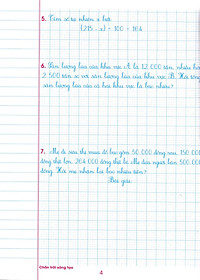 5. Tìm số tự nhiên x biết
(215 - x) + 100 = 164
6. Sản lượng lúa của khu vực A là 12 000 tấn, nhiều hơn
2 500 tấn so với sản lượng lúa của khu vực B. Hỏi tổng
sản lượng lúa của cả hai khu vực là bao nhiêu?
7. Mẹ đi siêu thị mua đồ bao gồm 50 000 đồng rau, 150 000
đồng thịt lợn, 264 000 đồng thịt bò. Mẹ đưa người bán 500 000
đồng. Hỏi mẹ nhận lại bao nhiêu tiền?
Bài giải
Chân trời sáng tạo
4